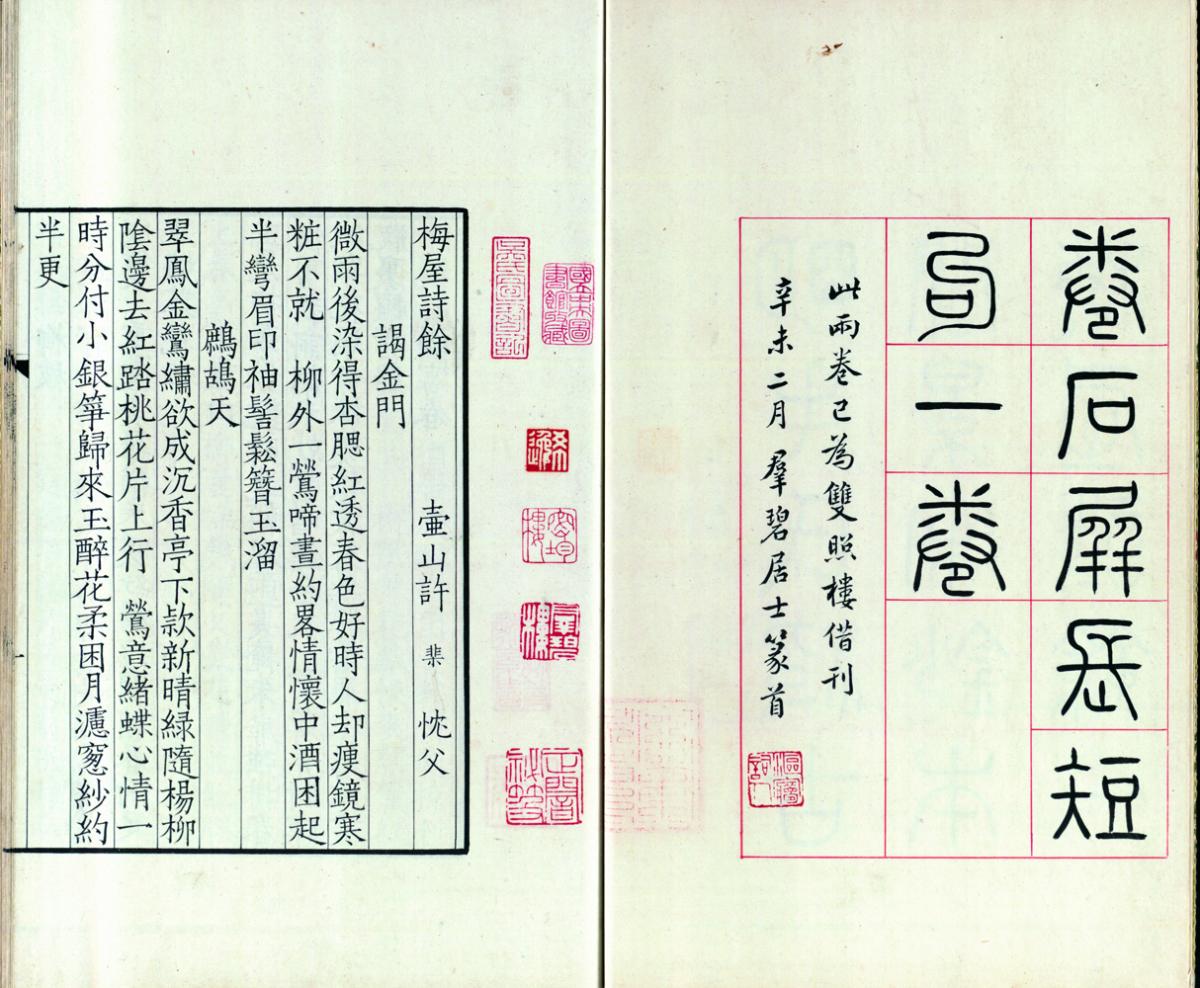 卷石屏長短
句一卷
此兩卷已為雙照樓借刊
辛未二月 羣碧居士篆首
國立中央圖書館收藏
羣碧樓
梅屋詩餘 壷山許 棐 忱父
謁金門
微雨後染得杏腮紅透春色好時人却瘦鏡寒
粧不就 柳外一鶯啼晝約畧情懷中酒困起
半彎眉印袖髻鬆簪玉溜
鷓鴣天
翠鳳金鸞繡欲成沉香亭下款新晴緑隨楊柳
陰邊去紅踏桃花片上行 鶯意緒蝶心情一
時分付小銀箏歸來玉醉花柔困月濾窻紗約
半更